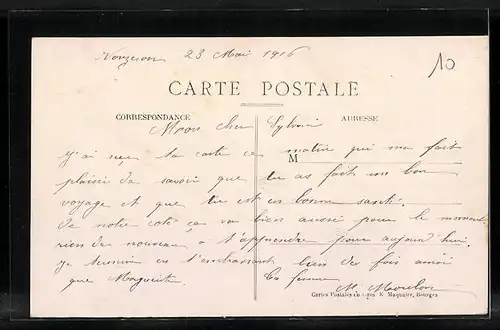 23 Mai 1916
10
CARTE POSTALE
CORRESPONDANCE
ADRESSE
Mon cher Sylvain
M
J'ai reçu ta carte ce matin qui ma fait
plaisir de savoir que tu as fait un bon
voyage et que tu est en bonne santé.
de notre coté ça va bien aussi pour le moment
rien des nouveau a t'apprendre pour aujourd'hui.
Je termine en t'embrassant bien des fois ainsi
que Marguerite. Ta femme
M. Moulon
Cartes Postales en gros E. Maquaire, Bourges